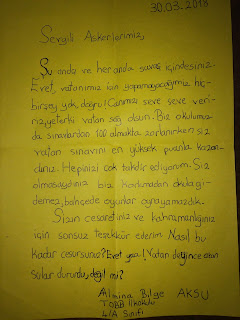 30.03.2018
Sevgili Askerlerimiz,
Şu anda ve her anda savaş içindesiniz.
Evet, vatanımız için yapamayacağımız hiç-
birşey yok, doğru! Canımızı seve seve veri-
riz yeterki vatan sağ olsun. Biz okulumuz
da sınavlardan 100 almakta zorlanırken siz
vatan sınavını en yüksek puanla kazan-
dınız. Hepinizi çok takdir ediyorum. Siz
olmasaydınız biz korkmadan okula gi-
demez, bahçede oyunlar oynayamazdık.
Sizin cesaretiniz ve kahramanlığınız
için sonsuz teşekkür ederim. Nasıl bu
kadar cesursunuz? Evet yaa! Vatan deyince akan
sular durur, değil mi?
Almina Bilge AKSU
TOBB İlkokulu
4/A Sınıfı